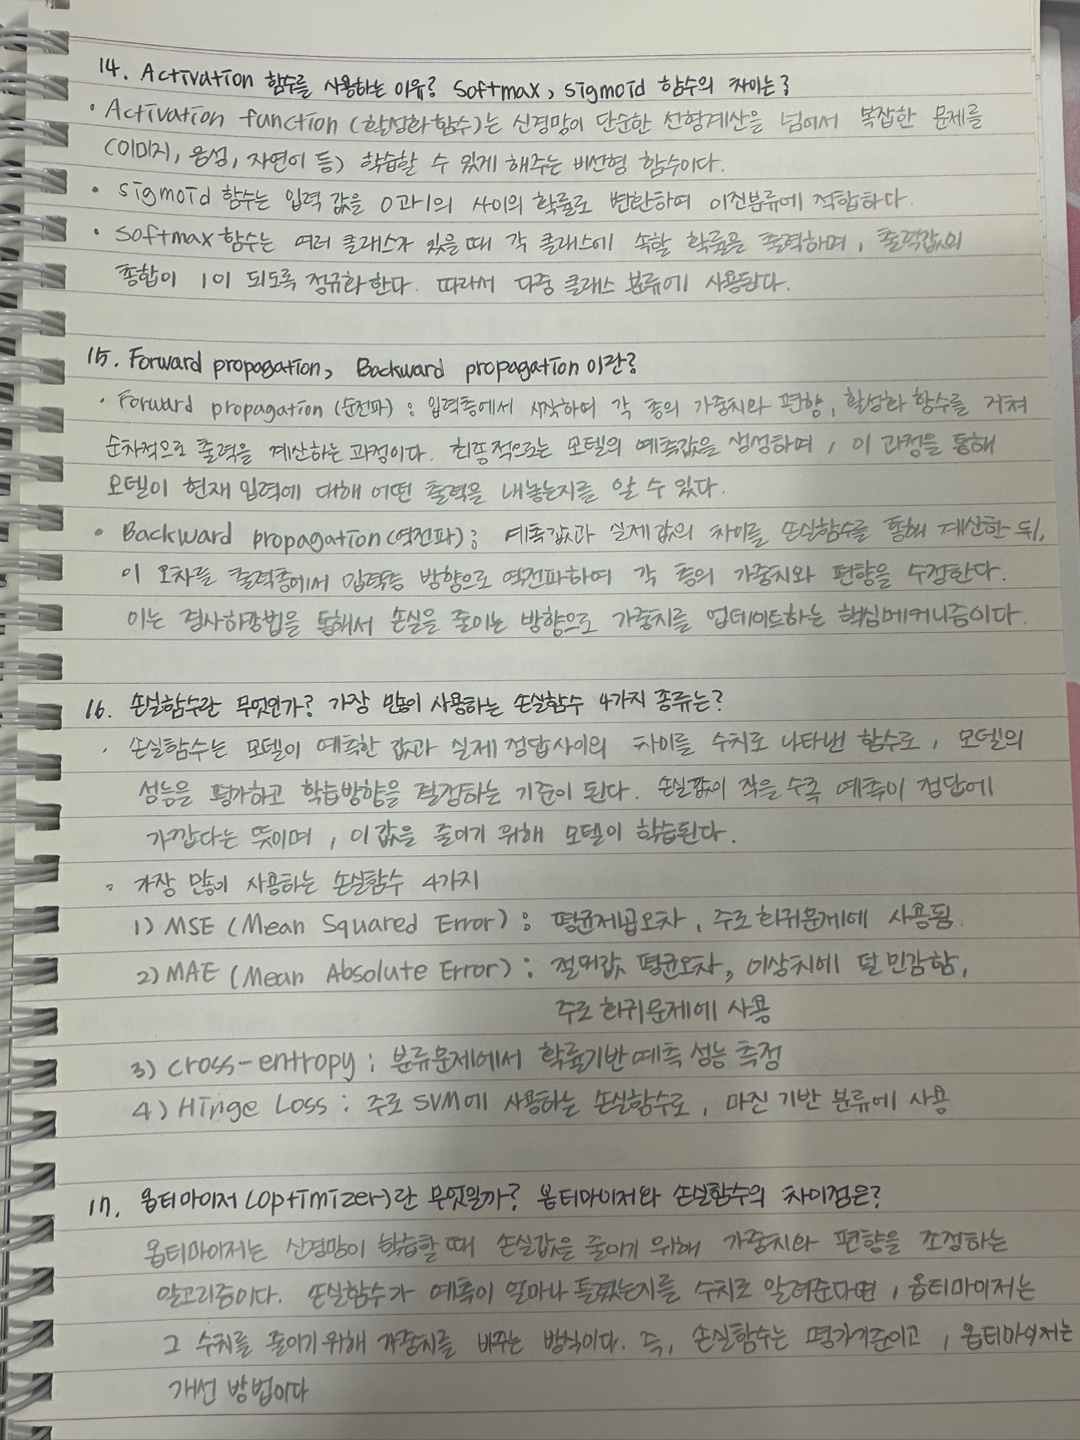 14. Activation 함수를 사용하는 이유? Softmax, sigmoid 함수의 차이는?
· Activation function (활성화 함수)는 신경망이 단순한 선형계산을 넘어서 복잡한 문제를
(이미지, 음성, 자연어 등) 학습할 수 있게 해주는 비선형 함수이다.
· sigmoid 함수는 입력 값을 0과1의 사이의 확률로 변환하여 이진분류에 적합하다.
· softmax 함수는 여러 클래스가 있을 때 각 클래스에 속할 확률을 출력하며, 출력값의
총합이 1이 되도록 정규화한다. 따라서 다중 클래스 분류에 사용된다.
15. Forward propagation, Backward propagation 이란?
· Forward propagation (순전파) : 입력층에서 시작하여 각 층의 가중치와 편향, 활성화 함수를 거쳐
순차적으로 출력을 계산하는 과정이다. 최종적으로는 모델의 예측값을 생성하며, 이 과정을 통해
모델이 현재 입력에 대해 어떤 출력을 내놓는지를 알 수 있다.
· Backward propagation (역전파) : 예측값과 실제 값의 차이를 손실함수를 통해 계산한 뒤,
이 오차를 출력층에서 입력층 방향으로 역전파하여 각 층의 가중치와 편향을 수정한다.
이는 경사하강법을 통해서 손실을 줄이는 방향으로 가중치를 업데이트하는 핵심메커니즘이다.
16. 손실함수란 무엇인가? 가장 많이 사용하는 손실함수 4가지 종류는?
· 손실함수는 모델이 예측한 값과 실제 정답사이의 차이를 수치로 나타낸 함수로, 모델의
성능을 평가하고 학습방향을 결정하는 기준이 된다. 손실값이 작을 수록 예측이 정답에
가깝다는 뜻이며, 이 값을 줄이기 위해 모델이 학습된다.
· 가장 많이 사용하는 손실함수 4가지
1) MSE (Mean Squared Error) : 평균제곱오차, 주로 회귀문제에 사용됨.
2) MAE (Mean Absolute Error) : 절대값 평균오차, 이상치에 덜 민감함,
주로 회귀문제에 사용
3) cross-entropy : 분류문제에서 확률기반 예측 성능 측정
4) Hinge Loss : 주로 SVM에 사용하는 손실함수로, 마진 기반 분류에 사용
17. 옵티마이저 (Optimizer)란 무엇일까? 옵티마이저와 손실함수의 차이점은?
옵티마이저는 신경망이 학습할 때 손실값을 줄이기 위해 가중치와 편향을 조정하는
알고리즘이다. 손실함수가 예측이 얼마나 틀렸는지를 수치로 알려준다면, 옵티마이저는
그 수치를 줄이기 위해 가중치를 바꾸는 방식이다. 즉, 손실함수는 평가기준이고, 옵티마이저는
개선 방법이다